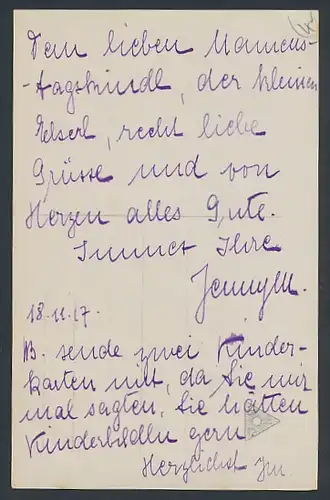 Dem lieben Namens-
-tagskindl, der kleinen
Elserl, recht liebe
Grüsse und von
Herzen alles Gute.
Immer Ihre
Jenny M.
18.11.17.
B. sende zwei Kinder-
karten mit, da Sie mir
mal sagten, Sie hätten
Kinderbildln gern.
Herzlichst JM.